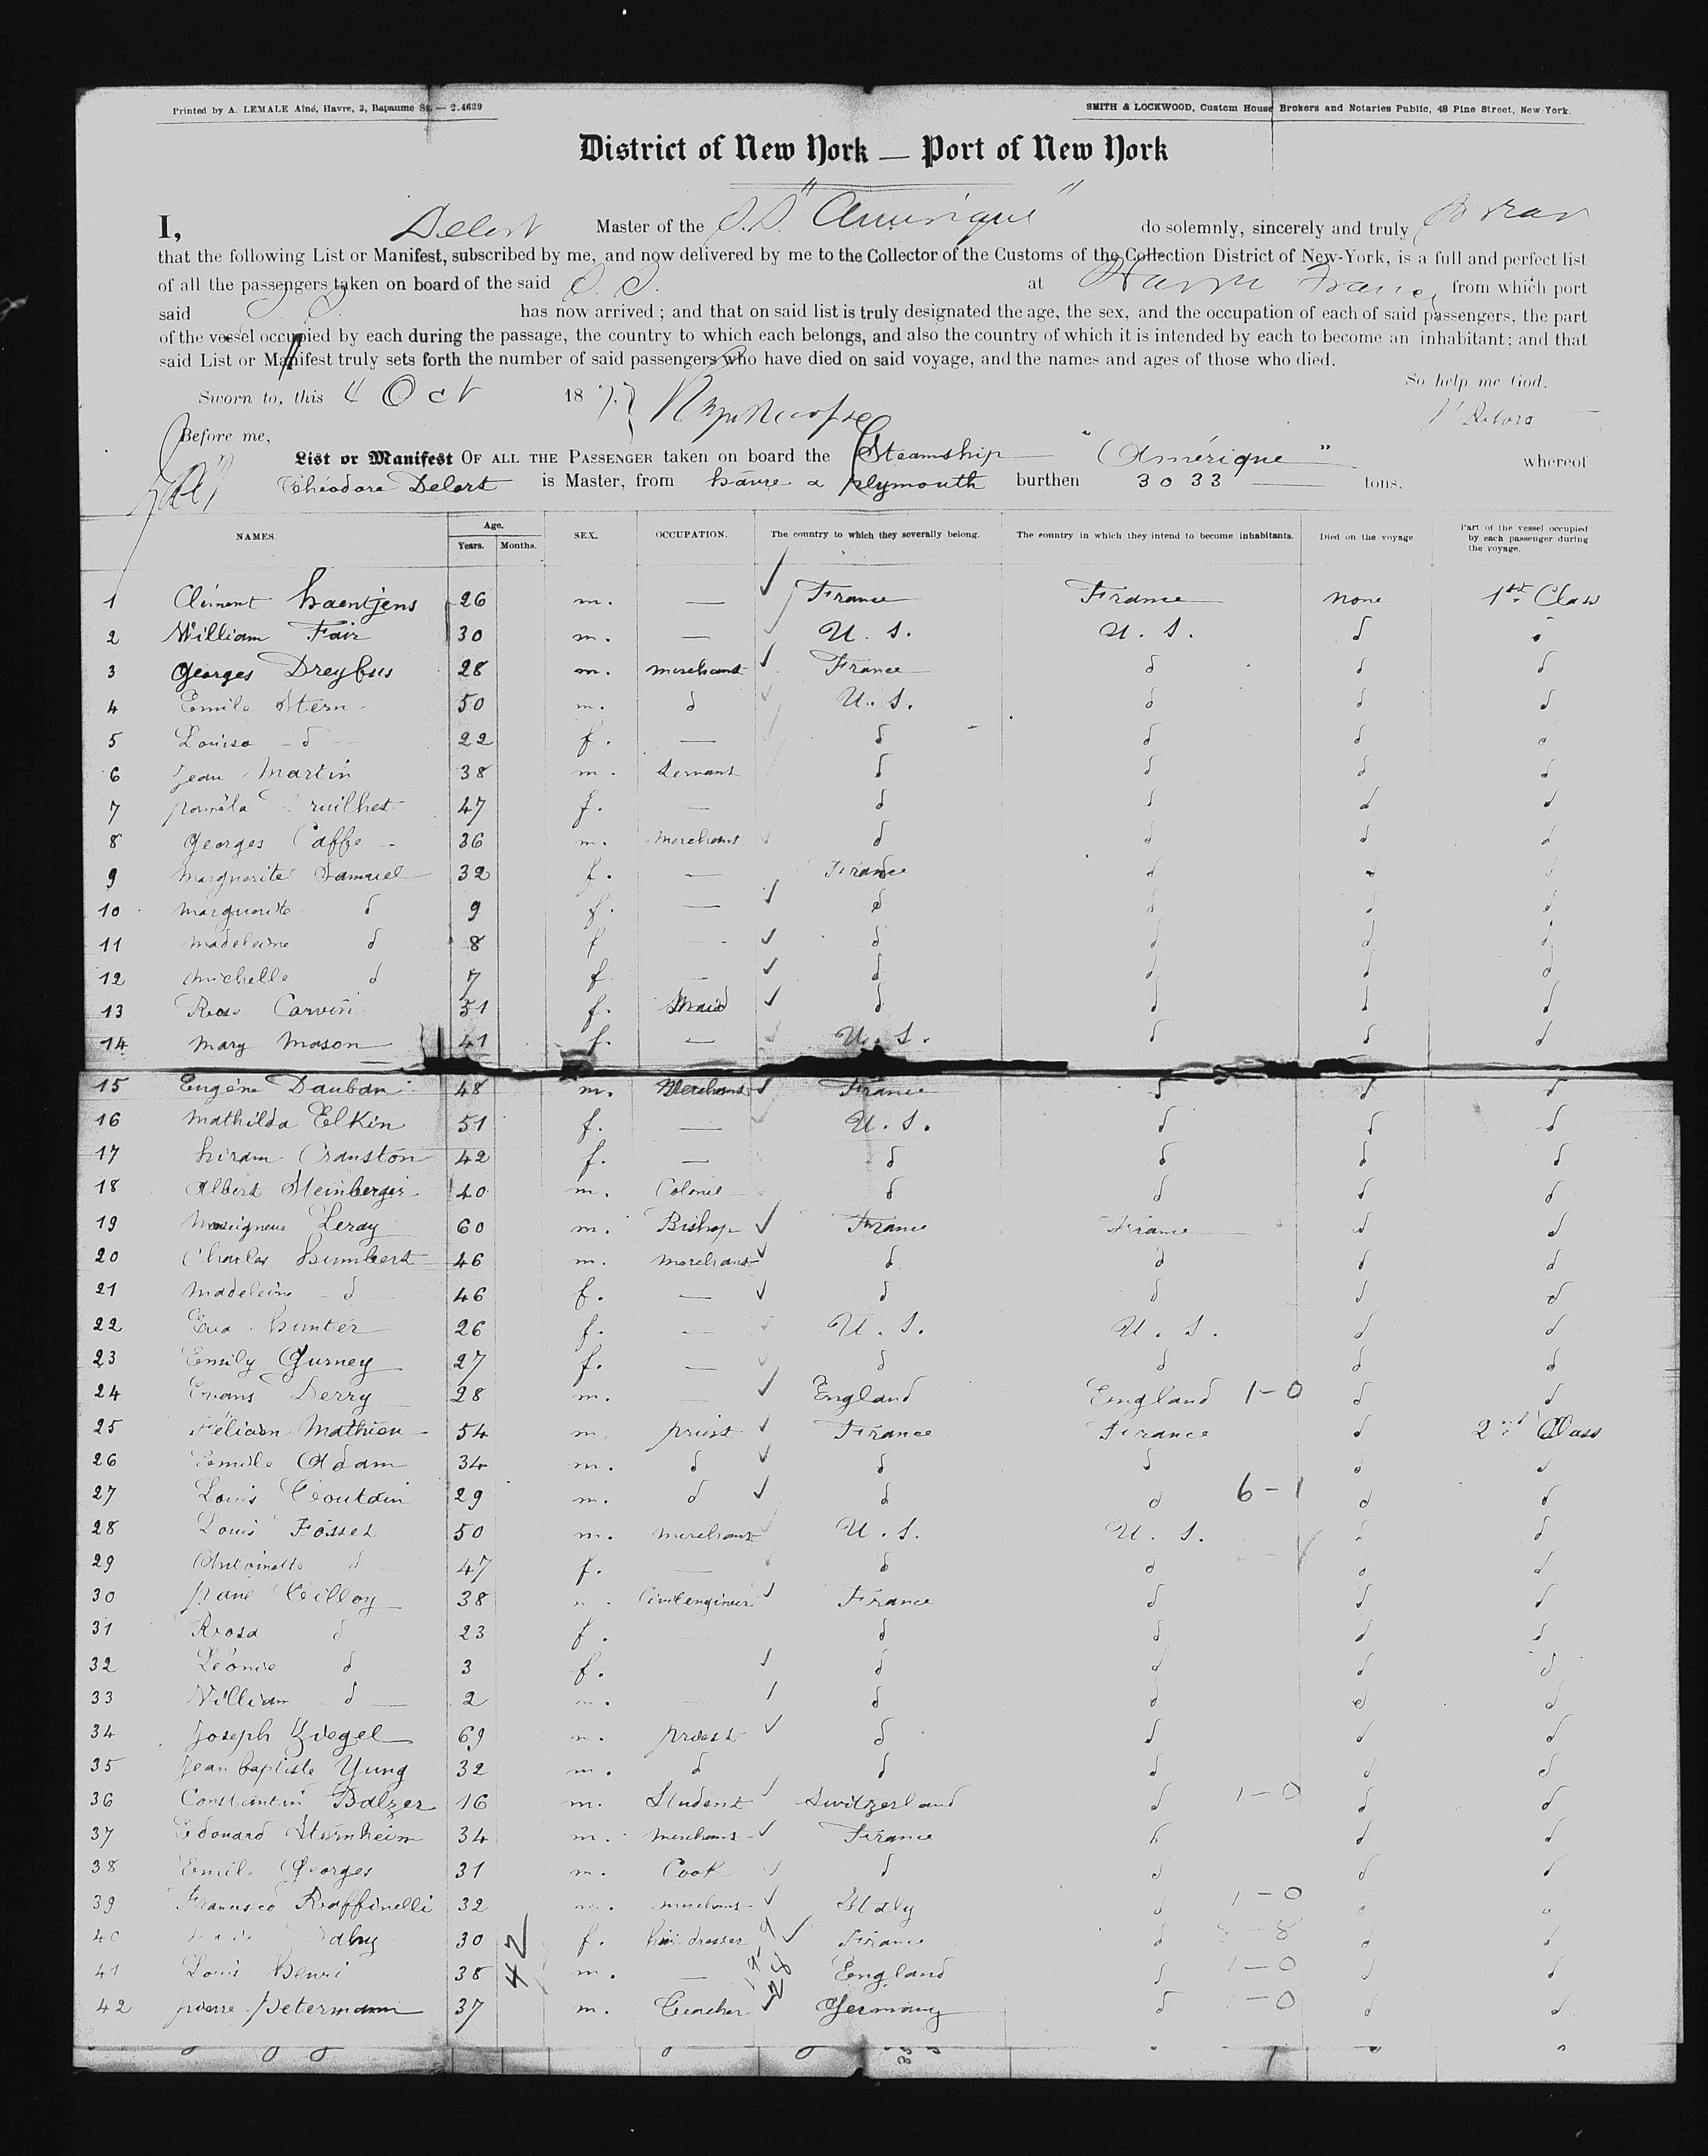 Printed by A. LEMALE Aîné, Havre, 3, Bapaume St. — 2.4639
SMITH & LOCKWOOD, Custom House Brokers and Notaries Public, 48 Pine Street, New-York.
District of New York — Port of New York
I, Delort Master of the S.S. "Amérique" do solemnly, sincerely and truly
that the following List or Manifest, subscribed by me, and now delivered by me to the Collector of the Customs of the Collection District of New-York, is a full and perfect list
of all the passengers taken on board of the said S. S. at Havre France from which port
said S. S. has now arrived ; and that on said list is truly designated the age, the sex, and the occupation of each of said passengers, the part
of the vessel occupied by each during the passage, the country to which each belongs, and also the country of which it is intended by each to become an inhabitant; and that
said List or Manifest truly sets forth the number of said passengers who have died on said voyage, and the names and ages of those who died.
So help me God.
Sworn to, this 4 Oct 187
Before me,
List or Manifest OF ALL THE PASSENGER taken on board the Steamship "Amérique" whereof
Théodore Delort is Master, from hâvre & plymouth burthen 3033 tons.
NAMES. Age. Years. Months. SEX. OCCUPATION. The country to which they severally belong. The country in which they intend to become inhabitants. Died on the voyage. Part of the vessel occupied by each passenger during the voyage.
1 Clément haentjens 26 m. — France France none 1st Class
2 William Fair 30 m. — U. S. U. S. d d
3 Georges Dreyfus 28 m. merchant France d d d
4 Emile Stern 50 m. d U. S. d d d
5 Louise d 22 f. — d d d d
6 Jean Martin 38 m. Servant d d d d
7 paméla 47 f. — d d d d
8 Georges Caffe 36 m. merchant d d d d
9 Marguerite Samuel 32 f. — France d d d
10 Marguerite d 9 f. — d d d d
11 Madeleine d 8 f — d d d d
12 Michelle d 7 f — d d d d
13 Rose Carvin 31 f. Maid d d d d
14 Mary Mason 41 f. — U. S. d d d
15 Eugène Dauban 48 m. Merchant France d d d
16 Mathilda Elkin 51 f. — U. S. d d d
17 hiram Cranston 42 f. — d d d d
18 Albert Steinberger 40 m. Colonel d d d d
19 Monseigneur Leray 60 m. Bishop France France d d
20 Charles humbert 46 m. merchant d d d d
21 Madeleine d 46 f. — d d d d
22 Eva hunter 26 f. — U. S. U. S. d d
23 Emily Gurney 27 f. — d d d d
24 Evans Derry 28 m. — England England 1-0 d d
25 Félicien Mathieu 54 m. priest France France d 2nd Class
26 Emile Adam 34 m. d d d d d
27 Louis 29 m. d d d 6-1 d d
28 Louis Fosset 50 m. merchant U. S. U. S. d d
29 Antoinette d 47 f. — d d d d
30 38 m. Civil engineer France d d d
31 Rosa d 23 f. d d d d
32 Léonie d 3 f. d d d d
33 William d 2 m. — d d d d
34 Joseph Ziegel 69 m. priest d d d d
35 Jean baptiste Yung 32 m. d d d d d
36 Constantin Balzer 16 m. Student Switzerland d 1-0 d d
37 Edouard Sternheim 34 m. merchant France d d d
38 Emile Georges 31 m. Cook d d d d
39 Francisco Raffinelli 32 m. merchant Italy d 1-0 d d
40 30 f. hair dresser France d d d
41 Louis henri 38 m. — England d 1-0 d d
42 pierre petermann 37 m. Teacher Germany d 1-0 d d
42